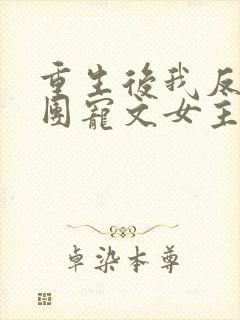 重生後我反
團寵文女主
卓染本尊